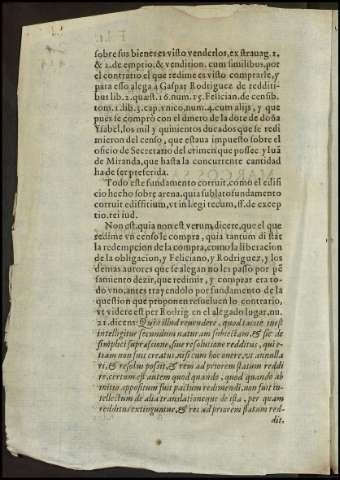 sobre sus bienes es visto venderlos, ex strauag. 1.
& 2. de emptio. & vendition. cum similibus, por
el contrario el que redime es visto comprarle, y
para esso alega à Gaspar Rodriguez de redditi-
bus lib. 2. quæst. 16. num. 15. Felician. de censib.
tom. 1. lib. 3. cap. vnico, num. 4. cum alijs, y que
pues se comprò con el dinero de la dote de doña
Ysabel, los mil y quinientos ducados que se redi
mieron del censo, que estaua impuesto sobre el
oficio de Secretario del crimen que possee y luã
de Miranda, que hasta la concurrente cantidad
ha de ser preferida.
Todo este fundamento corruit, como el edifi
cio hecho sobre arena. quia sublato fundamento
corruit edifitium, vt in l. egi tecum, ff. de excep
tio. rei iud.
Non est. quia non est verum, dicere, que el que
redime vn censo le compra, quia tantum distãt
la redempcion de la compra, como la liberacion
de la obligacion, y Feliciano, y Rodriguez, y los
demas autores que se alegan no les passo por pẽ
samiento dezir, que redimir, y comprar era to-
do vno, antes trayendolo por fundamento de la
question que proponen resoluen lo contrario,
vt videre est per Rodrig. en el alegado lugar, nu.
21. dicens: illud reuendere, quod tacitè inest
intelligitur secundum naturam subiectam, & sic de
simplici supressione, siue resolutione redditus, qui e-
tiam non fuit creatus, nisi cum hoc onere, vt annulla
ri, & resolui possit, & rem ad priorem statum reddi
re, certum est autem quod quando, quod quando ab
initio appositum fuit pactum redimendi, non fuit in-
tellectum de alia translatione quàm de ista, per quam
redditus extinguitur, & res ad priorem statum red-
dit.